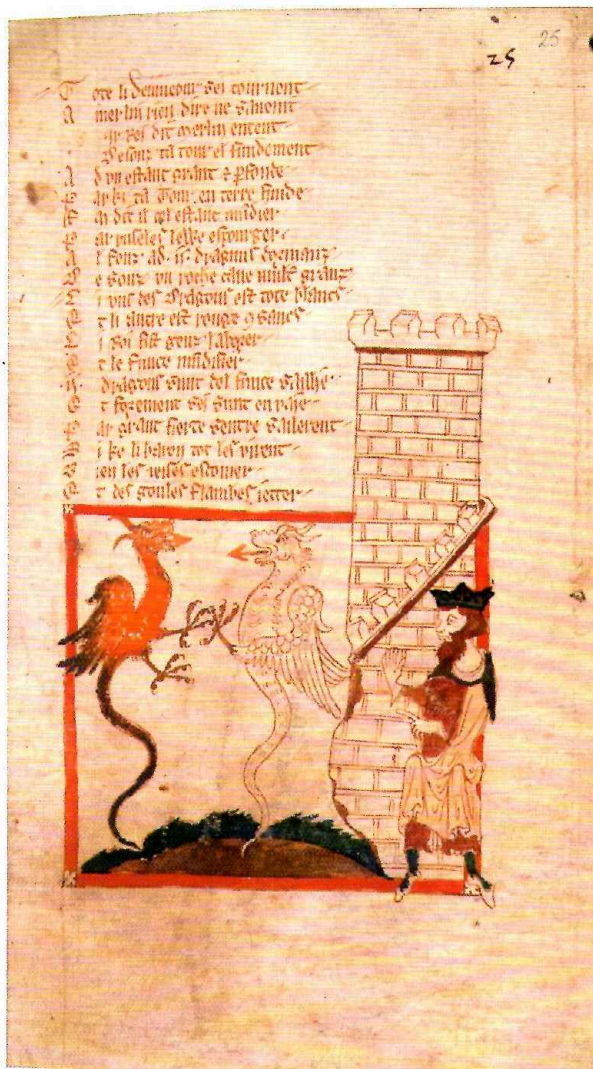 25
25
Tote li deuineour sei tournont
A merlin rien dire ne sauoint
Roi dit merlin entent
Desouz ta tour el fundement
Ad vn estanc grant & pfonde
Par ki ta Tour en terre funde
dit il cel estanc wudier
Par ruseles lewe espourger
Al founz ad .ii. dragouns dormanz
De souz vn roche caue mult granz
Li vns des dragons est tote blancs
Et li autre est rouge 9 sancs
Li Roi fist genz
Et le
.ii. dragons sunt del saillie
Et forement sei sunt en
Par grant fierte sentre sailerent
Si ke li baron tot les virent
Bien les escomer
Et des goules flambes ietter